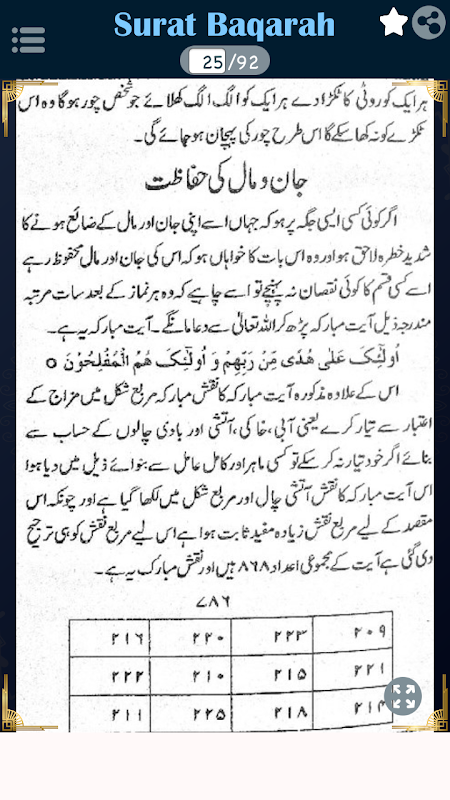 Surat Baqarah
25/92
ہر ایک کو روٹی کا ٹکڑا دے ہر ایک کو الگ الگ کھلائے جو شخص چور ہو گا وہ اس
ٹکڑے کو نہ کھا سکے گا اس طرح چور کی پہچان ہو جائے گی۔
جان و مال کی حفاظت
اگر کوئی کسی ایسی جگہ پر ہو کہ جہاں اسے اپنی جان اور مال کے ضائع ہونے کا
شدید خطرہ لاحق ہو اور وہ اس بات کا خواہاں ہو کہ اس کی جان اور مال محفوظ رہے
اسے کسی قسم کا کوئی نقصان نہ پہنچے تو اسے چاہیے کہ وہ ہر نماز کے بعد سات مرتبہ
مندرجہ ذیل آیت مبارکہ پڑھ کر اللہ تعالیٰ سے دعا مانگے۔ آیت مبارکہ یہ ہے۔
اُولٰٓئِکَ عَلٰی ھُدًی مِّنْ رَبِّھِمْ وَ اُولٰٓئِکَ ھُمُ الْمُفْلِحُوْنَ ○
اس کے علاوہ مذکورہ آیت مبارکہ کا نقش مبارکہ مربع شکل میں مزاج کے
اعتبار سے تیار کرے یعنی آبی، خاکی، آتشی اور بادی چالوں کے حساب سے
بنائے اگر خود تیار نہ کر سکے تو کسی ماہر اور کامل عامل سے بنوائے ذیل میں دیا ہوا
اس آیت مبارکہ کا نقش آتشی چال اور مربع شکل میں لکھا گیا ہے اور چونکہ اس
مقصد کے لیے مربع نقش زیادہ مفید ثابت ہوا ہے اس لیے مربع نقش کو ہی ترجیح
دی گئی ہے آیت کے مجموعی اعداد ۸۶۸ ہیں اور نقش مبارک یہ ہے۔
۷۸۶
۲۱۶ ۲۲۰ ۲۲۳ ۲۰۹
۲۲۲ ۲۱۰ ۲۱۵ ۲۲۱
۲۱۱ ۲۲۵ ۲۱۸ ۲۱۴